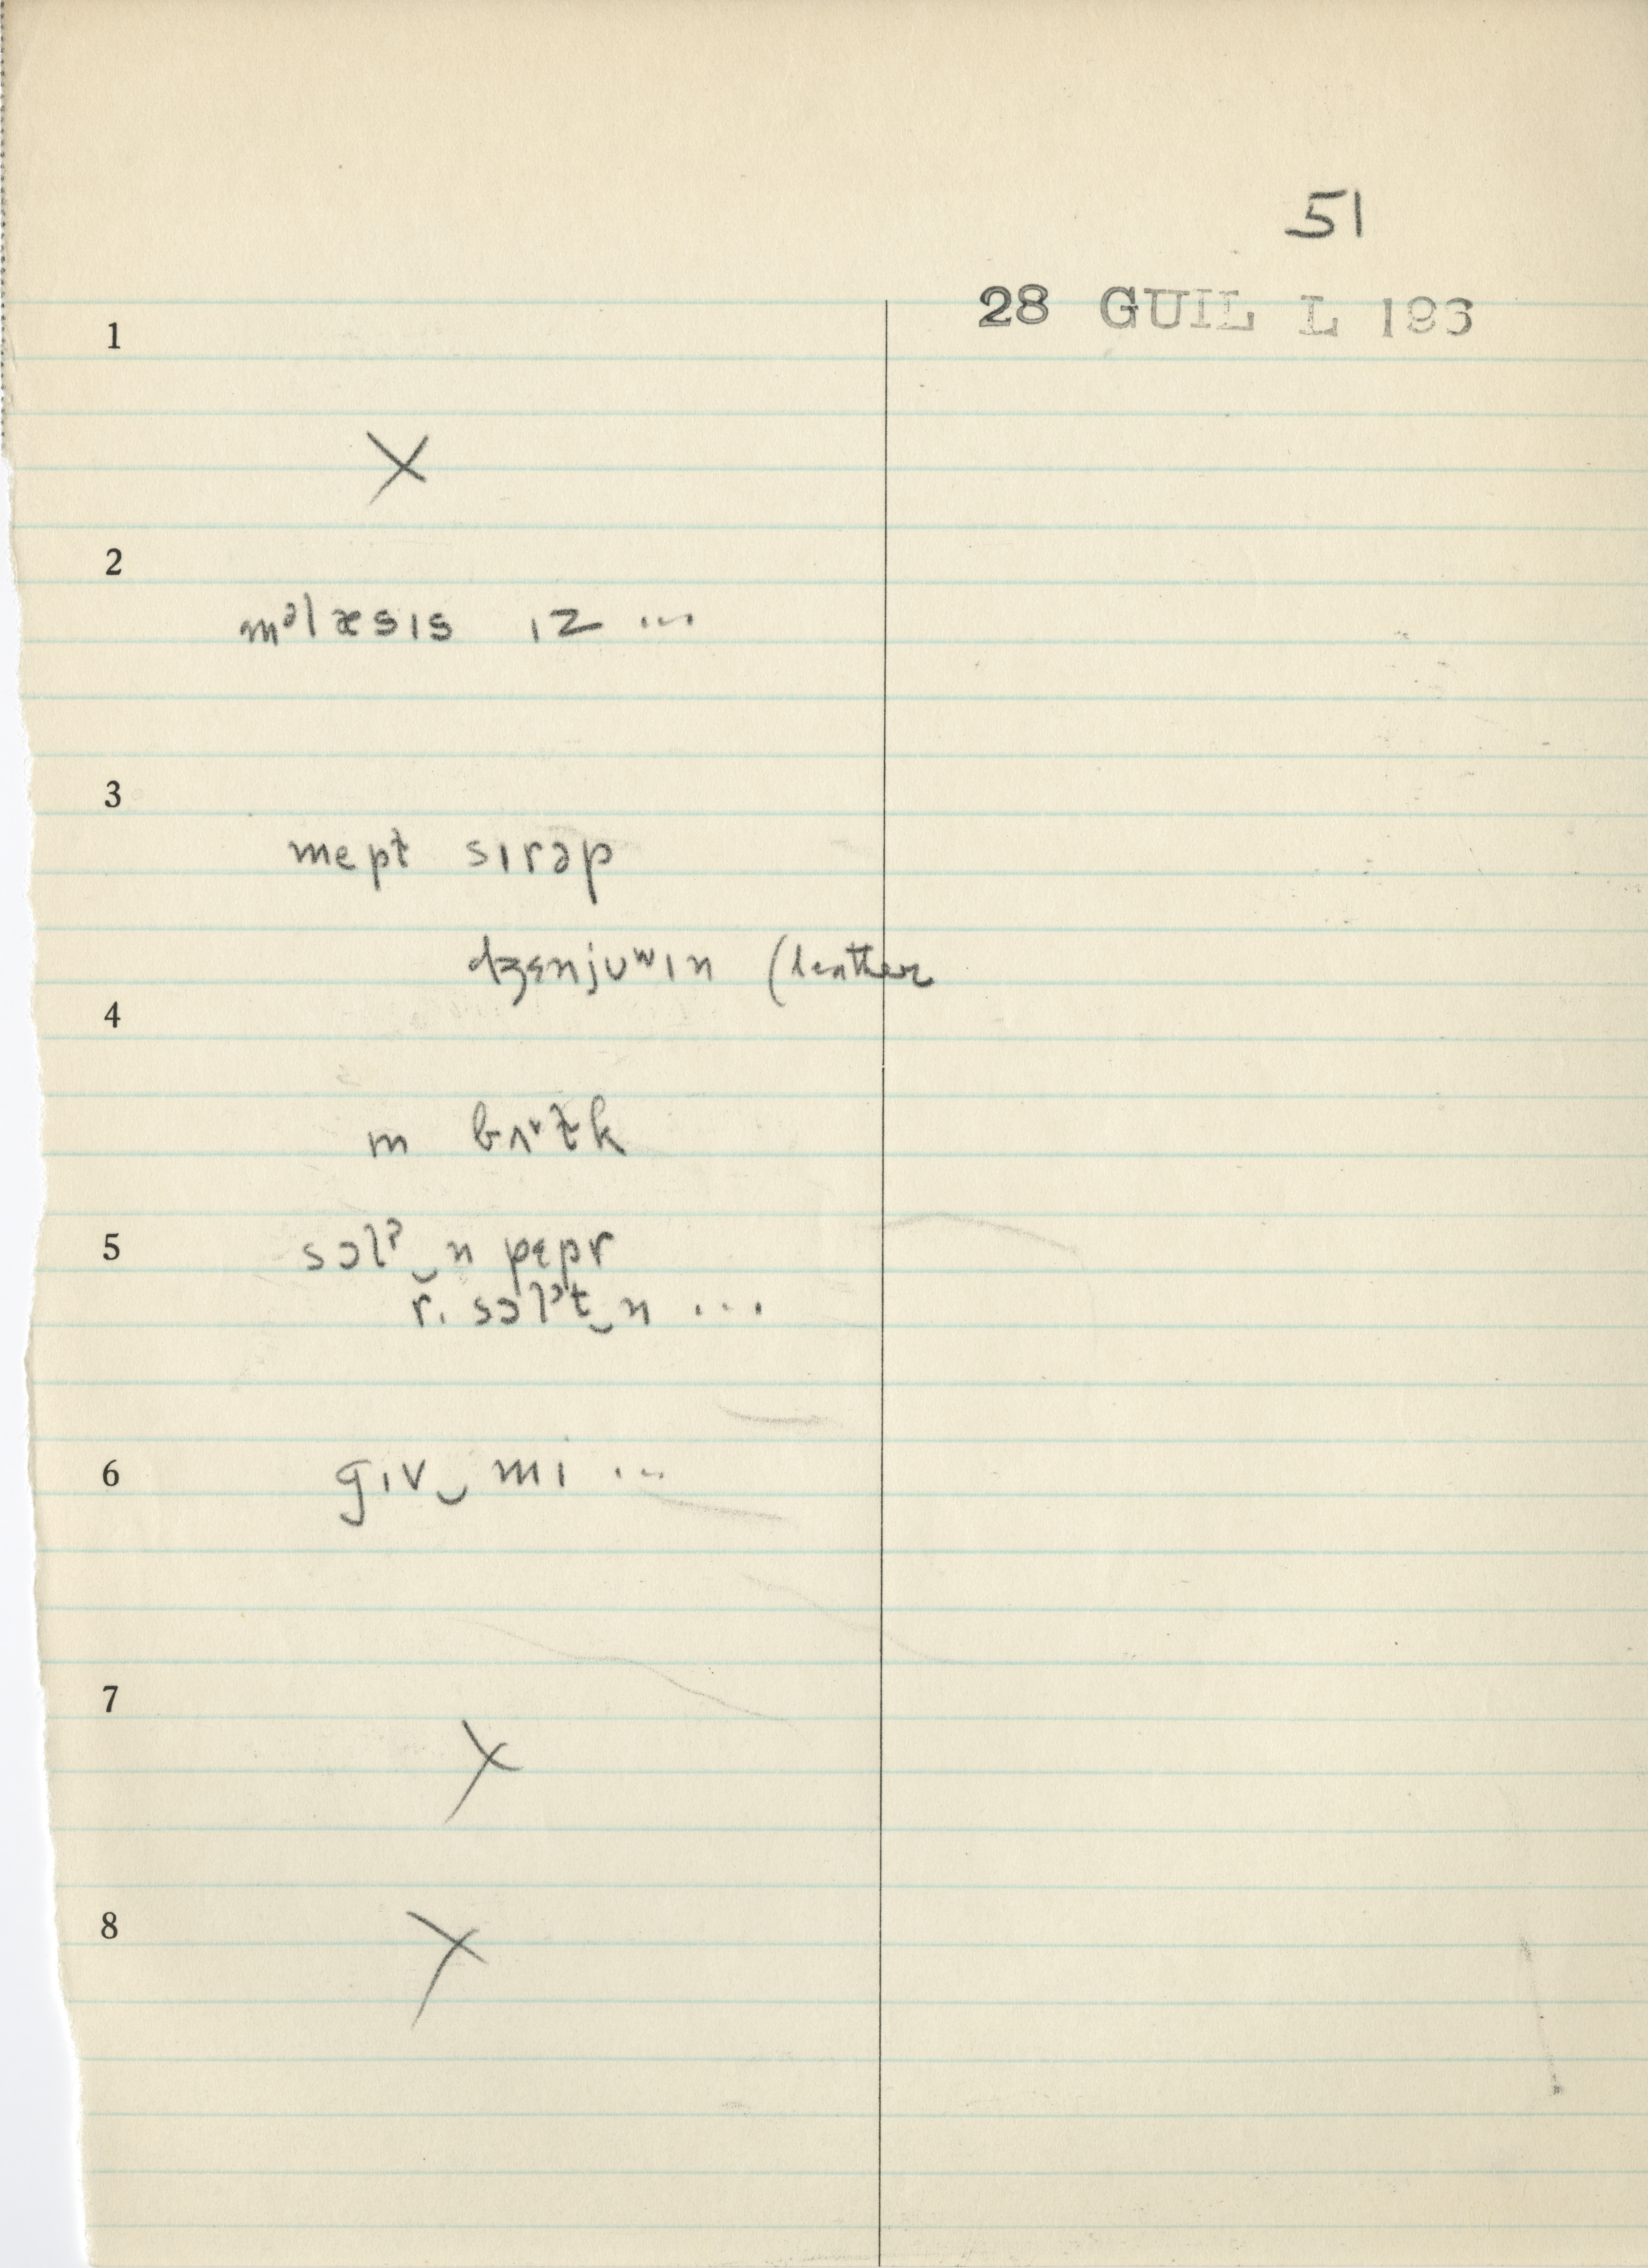 51
28 GUIL L 193
1
X
2
mᵊlæsɪs ɪz ...
3
mept sɪrəp
dʒɛnjuʷɪn (leather
4
m
5
sɔlˀ‿n pɛpr
r. sɔlˀt‿n ...
6
gɪv‿mɪ ...
7
X
8
X